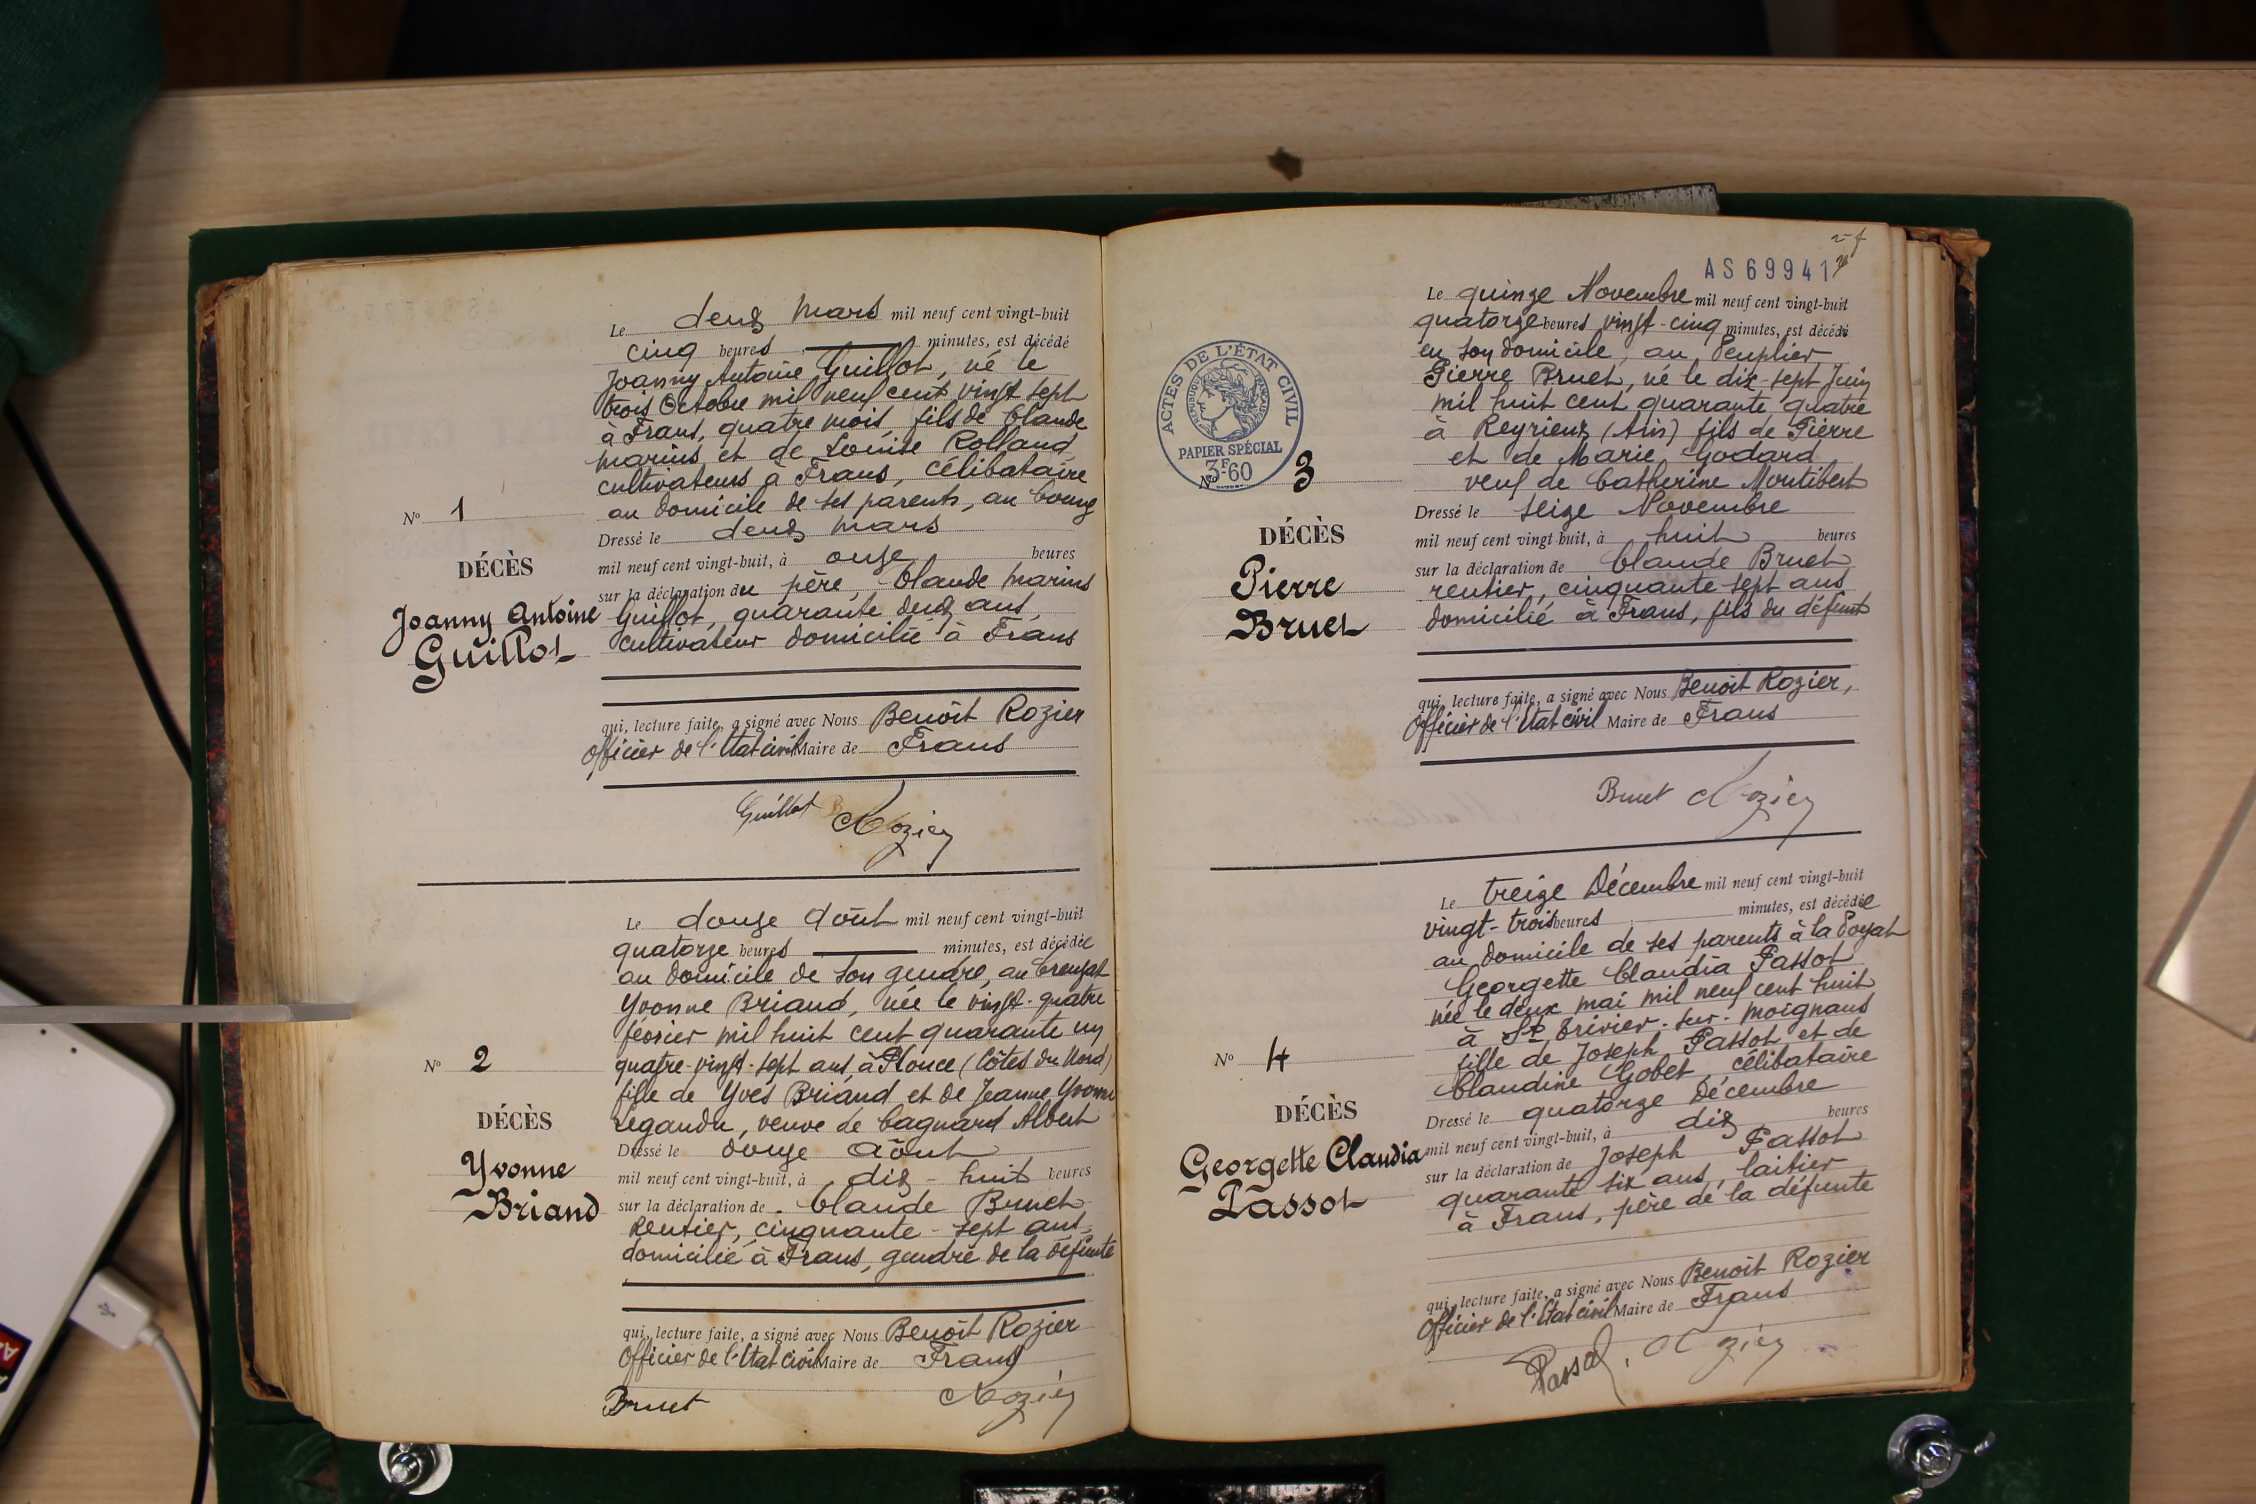 Le deux mars mil neuf cent vingt-huit
cinq heures minutes, est décédé
Joanny Antoine Guillot, né le
trois Octobre mil neuf cent vingt sept
à Frans, quatre mois, fils de Claude
Marius et de Louise Rolland
cultivateurs à Frans, célibataire
au domicile de ses parents, au bourg
Nº 1
Dressé le deux mars
mil neuf cent vingt-huit, à onze heures
DÉCÈS
sur la déclaration du père, Claude Marius
Joanny Antoine
Guillot, quarante deux ans,
Guillot
cultivateur domicilié à Frans
qui, lecture faite, a signé avec Nous Benoît Rozier
Officier de l'Etat civil Maire de Frans
Guillot Rozier
Le douze Août mil neuf cent vingt-huit
quatorze heures minutes, est décédée
au domicile de son gendre, au Creuzat
Yvonne Briand, née le vingt-quatre
février mil huit cent quarante un
Nº 2
quatre-vingt-sept ans, à Plouec (Côtes du Nord)
fille de Yves Briand et de Jeanne Yvonne
DÉCÈS
Legandu, veuve de Cagnard Albert
Dressé le douze Août
Yvonne
Briand
mil neuf cent vingt-huit, à dix-huit heures
sur la déclaration de Claude Bruet
rentier, cinquante-sept ans,
domicilié à Frans, gendre de la défunte
qui, lecture faite, a signé avec Nous Benoît Rozier
Officier de l'Etat civil Maire de Frans
Bruet Rozier
AS 69941
Le quinze Novembre mil neuf cent vingt-huit
quatorze heures vingt-cinq minutes, est décédé
en son domicile, au Peuplier
Pierre Bruet, né le dix-sept Juin
mil huit cent quarante quatre
à Reyrieux (Ain) fils de Pierre
et de Marie Godard
veuf de Catherine Montibert
ACTES DE L'ÉTAT CIVIL
RÉPUBLIQUE FRANÇAISE
PAPIER SPÉCIAL
3F60
Nº 3
Dressé le seize Novembre
DÉCÈS
mil neuf cent vingt-huit, à huit heures
sur la déclaration de Claude Bruet
Pierre
Bruet
rentier, cinquante-sept ans
domicilié à Frans, fils du défunt
qui, lecture faite, a signé avec Nous Benoît Rozier,
Officier de l'Etat civil Maire de Frans
Bruet Rozier
Le treize Décembre mil neuf cent vingt-huit
vingt-trois heures minutes, est décédée
au domicile de ses parents à la Poyat
Georgette Claudia Passot
née le deux mai mil neuf cent huit
à St Trivier-sur-Moignans
Nº 4
fille de Joseph Passot et de
Claudine Gobet, célibataire
DÉCÈS
Dressé le quatorze Décembre
mil neuf cent vingt-huit, à dix heures
Georgette Claudia
Passot
sur la déclaration de Joseph Passot
quarante six ans, laitier
à Frans, père de la défunte
qui, lecture faite, a signé avec Nous Benoît Rozier
Officier de l'Etat civil Maire de Frans
Passot, Rozier